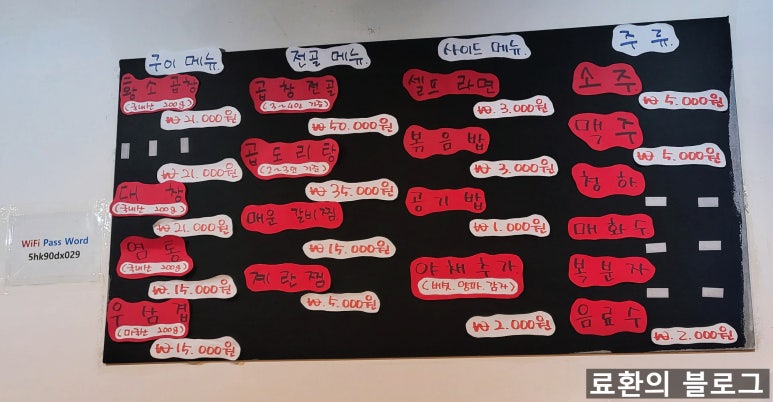 구이 메뉴.
황소곱창
(국내산 200g)
₩21.000원
₩21.000원
대창
(국내산 200g)
₩21.000원
염통
(국내산 200g)
₩15.000원
우삼겹
(미국산 200g)
₩15.000원
전골 메뉴.
곱창전골
(3~4인 기준)
₩50.000원
곱도리탕
(2~3인 기준)
₩35.000원
매운 갈비찜
₩15.000원
계란찜
₩5.000원
사이드 메뉴.
셀프 라면
₩3.000원
볶음밥
₩3.000원
공기밥
₩1.000원
야채추가
(버섯 양파 감자)
₩2.000원
주류.
소주
₩5.000원
맥주
₩5.000원
청하
매화수
복분자
음료수
₩2.000원
WiFi Pass Word
5hk90dx029
료환의 블로그